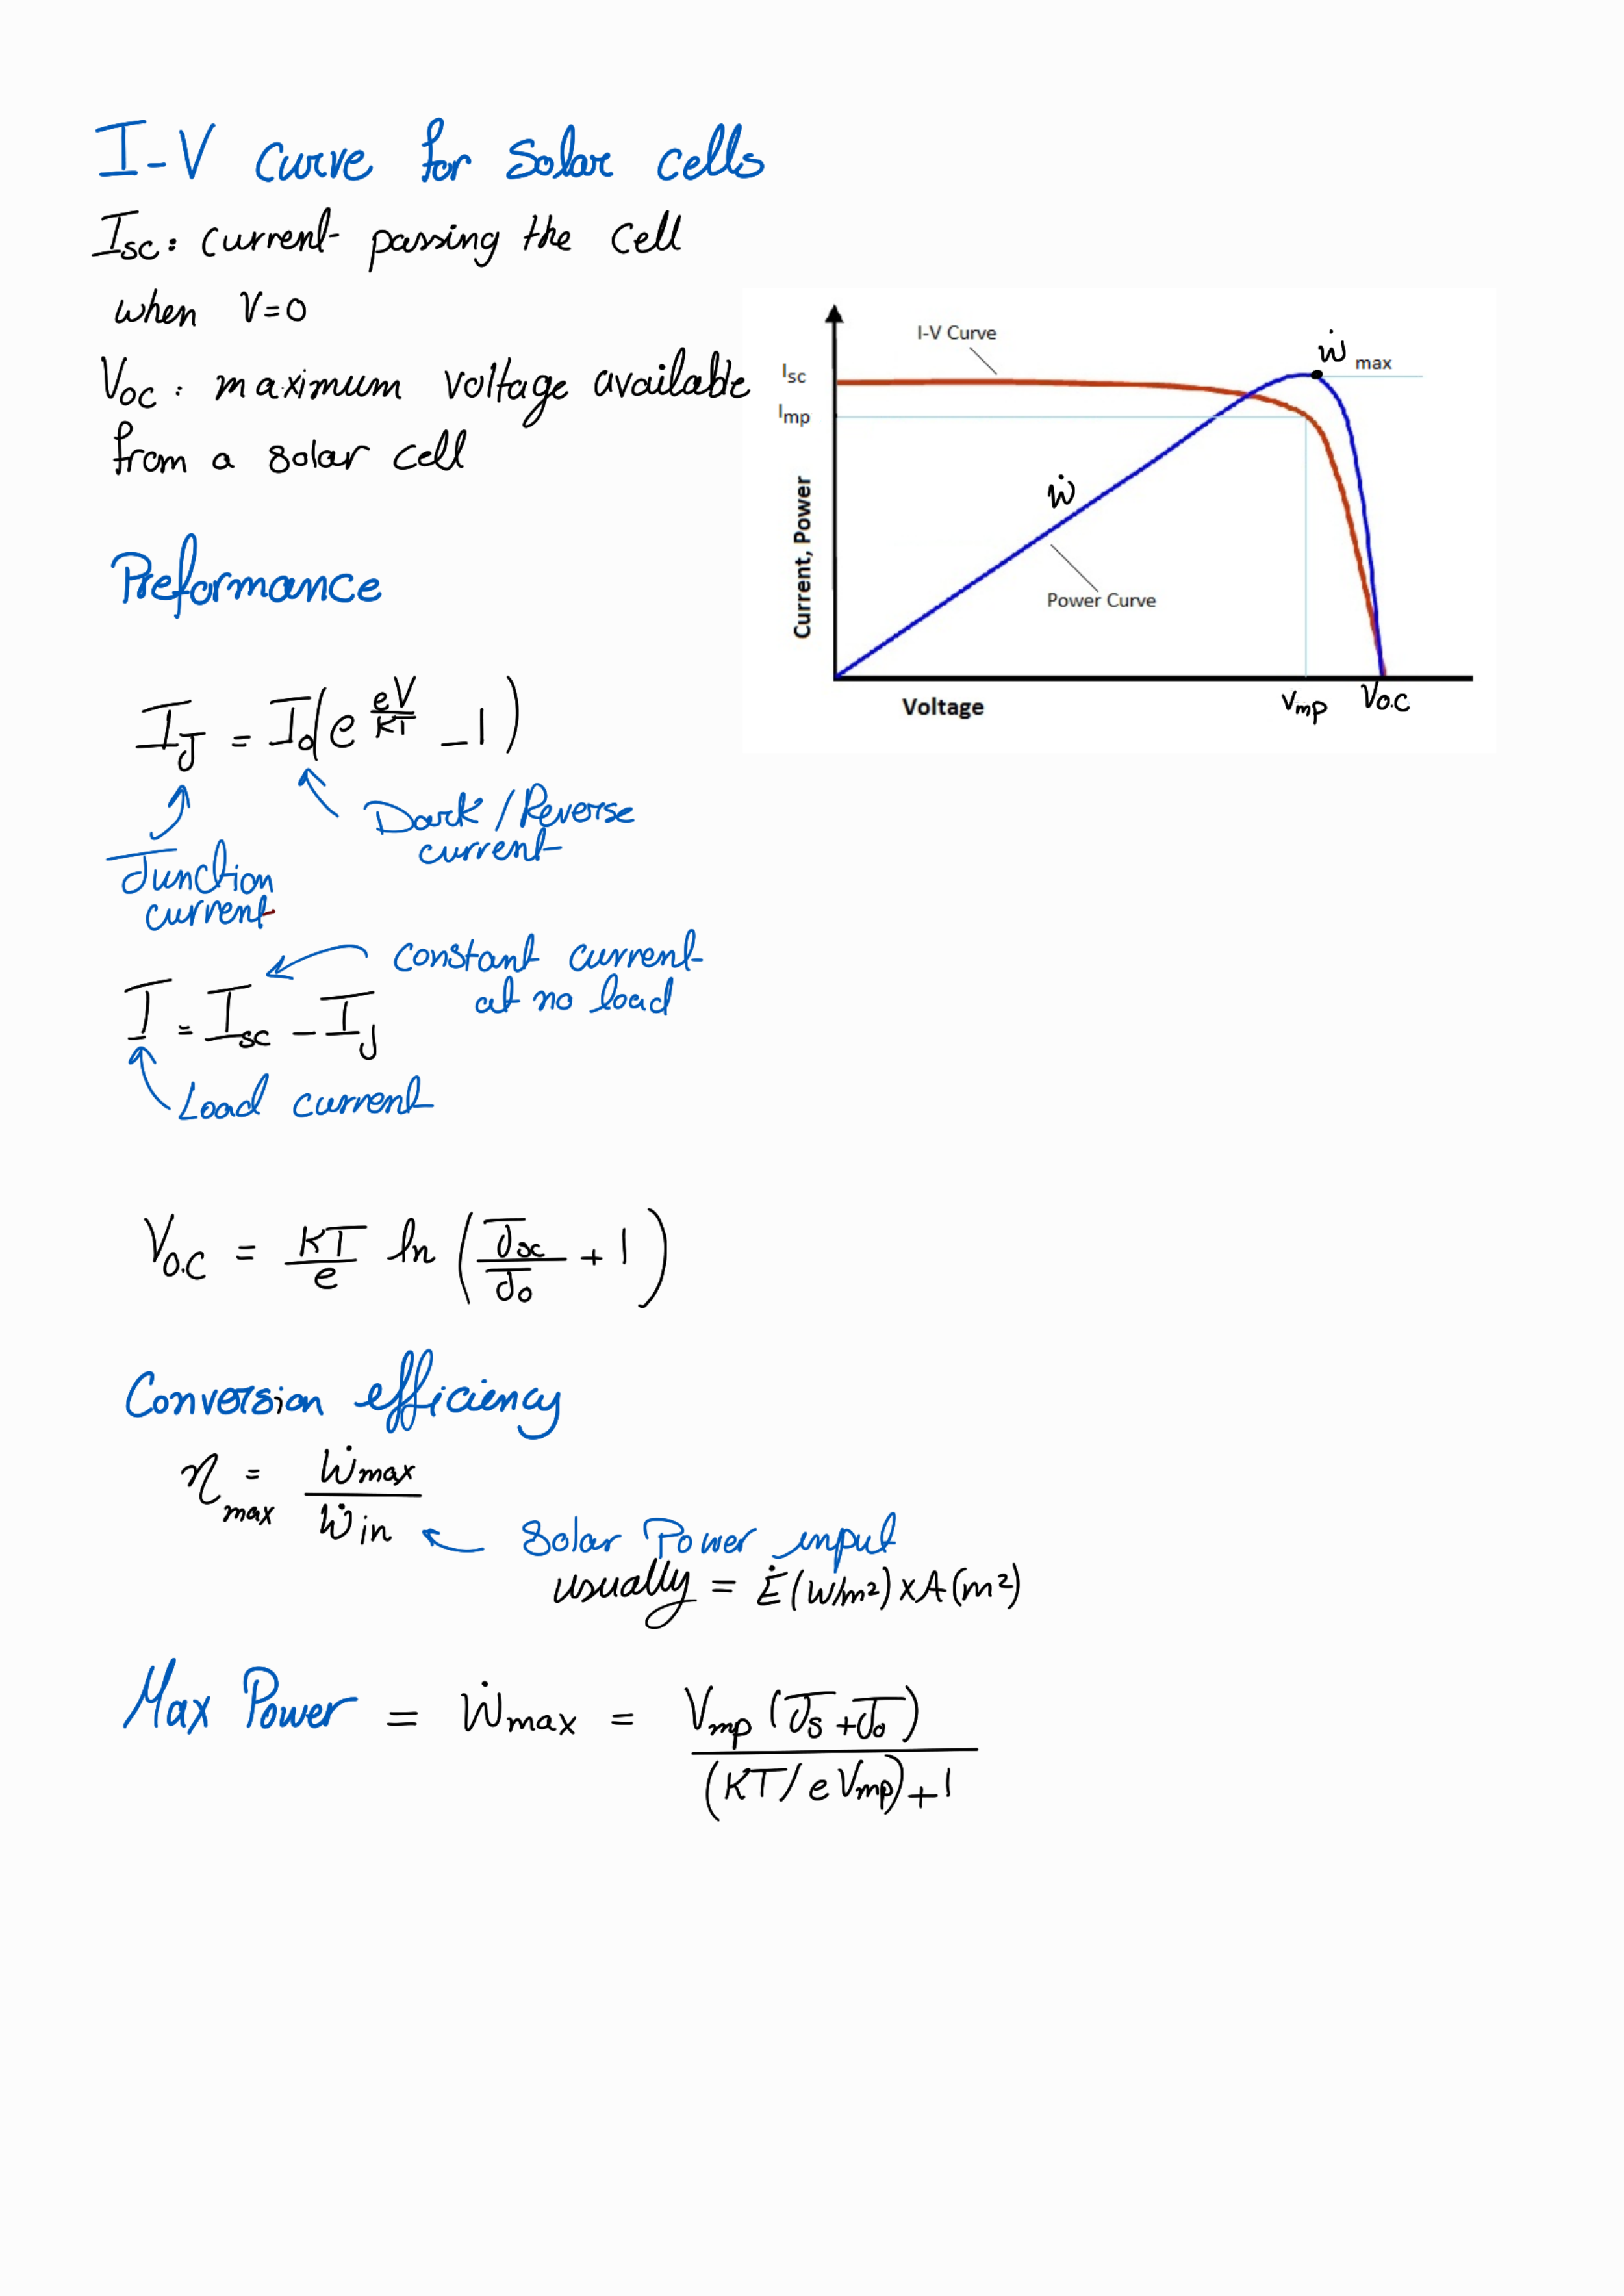 I-V curve for solar cells
Isc: current passing the cell
when V=0
Voc: maximum voltage available
from a solar cell
I-V Curve
Ẇ max
Isc
Imp
Ẇ
Current, Power
Power Curve
Voltage
Vmp Vo.c
Preformance
I_J = I_o(e^(eV/KT) - 1)
Dark/Reverse
current
Junction
current
constant current
at no load
I = I_sc - I_J
Load current
V_o.c = KT/e ln (J_sc/J_o + 1)
Conversion efficiency
η_max = Ẇmax/Ẇin
Solar Power input
usually = Ė(W/m²)xA(m²)
Max Power = Ẇmax = Vmp (J_s+J_o)/(KT/eVmp)+1